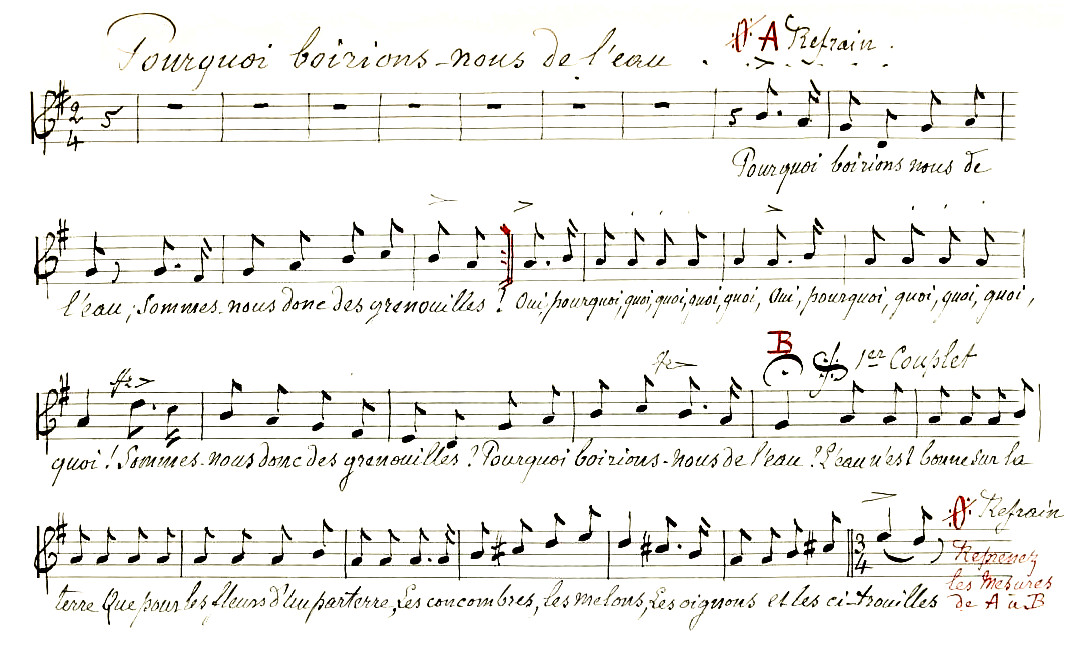 Pourquoi boirions-nous de l'eau. A Refrain.
2
4
Pourquoi boirions nous de
l'eau; Sommes-nous donc des grenouilles! Oui, pourquoi, quoi, quoi, quoi, quoi, Oui, pourquoi quoi, quoi, quoi,
B 1er Couplet
quoi! Sommes-nous donc des grenouilles? Pourquoi boirions-nous de l'eau? L'eau n'est bonne sur la
Refrain
3
4
Reprenez
les Mesures
de A à B
terre Que pour les fleurs d'un parterre, Les concombres, les melons, Les oignons et les ci-trouilles